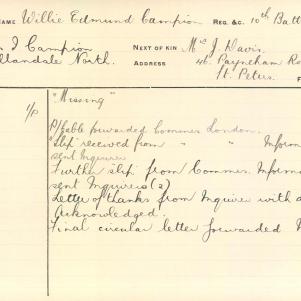 NAME Willie Edmund Campion REG. &C. 10th Batt
I Campion NEXT OF KIN Mrs J. Davis
llandale North. ADDRESS 46 Payneham Ro
St. Peters.
"Missing"
P/Cable forwarded Commr London.
"Slip received from " " Inform
sent Inquirer
Further slip from Commr. Informa
sent Inquirers (2)
Letter of thanks from Inquirer with
Acknowledged.
Final circular letter forwarded